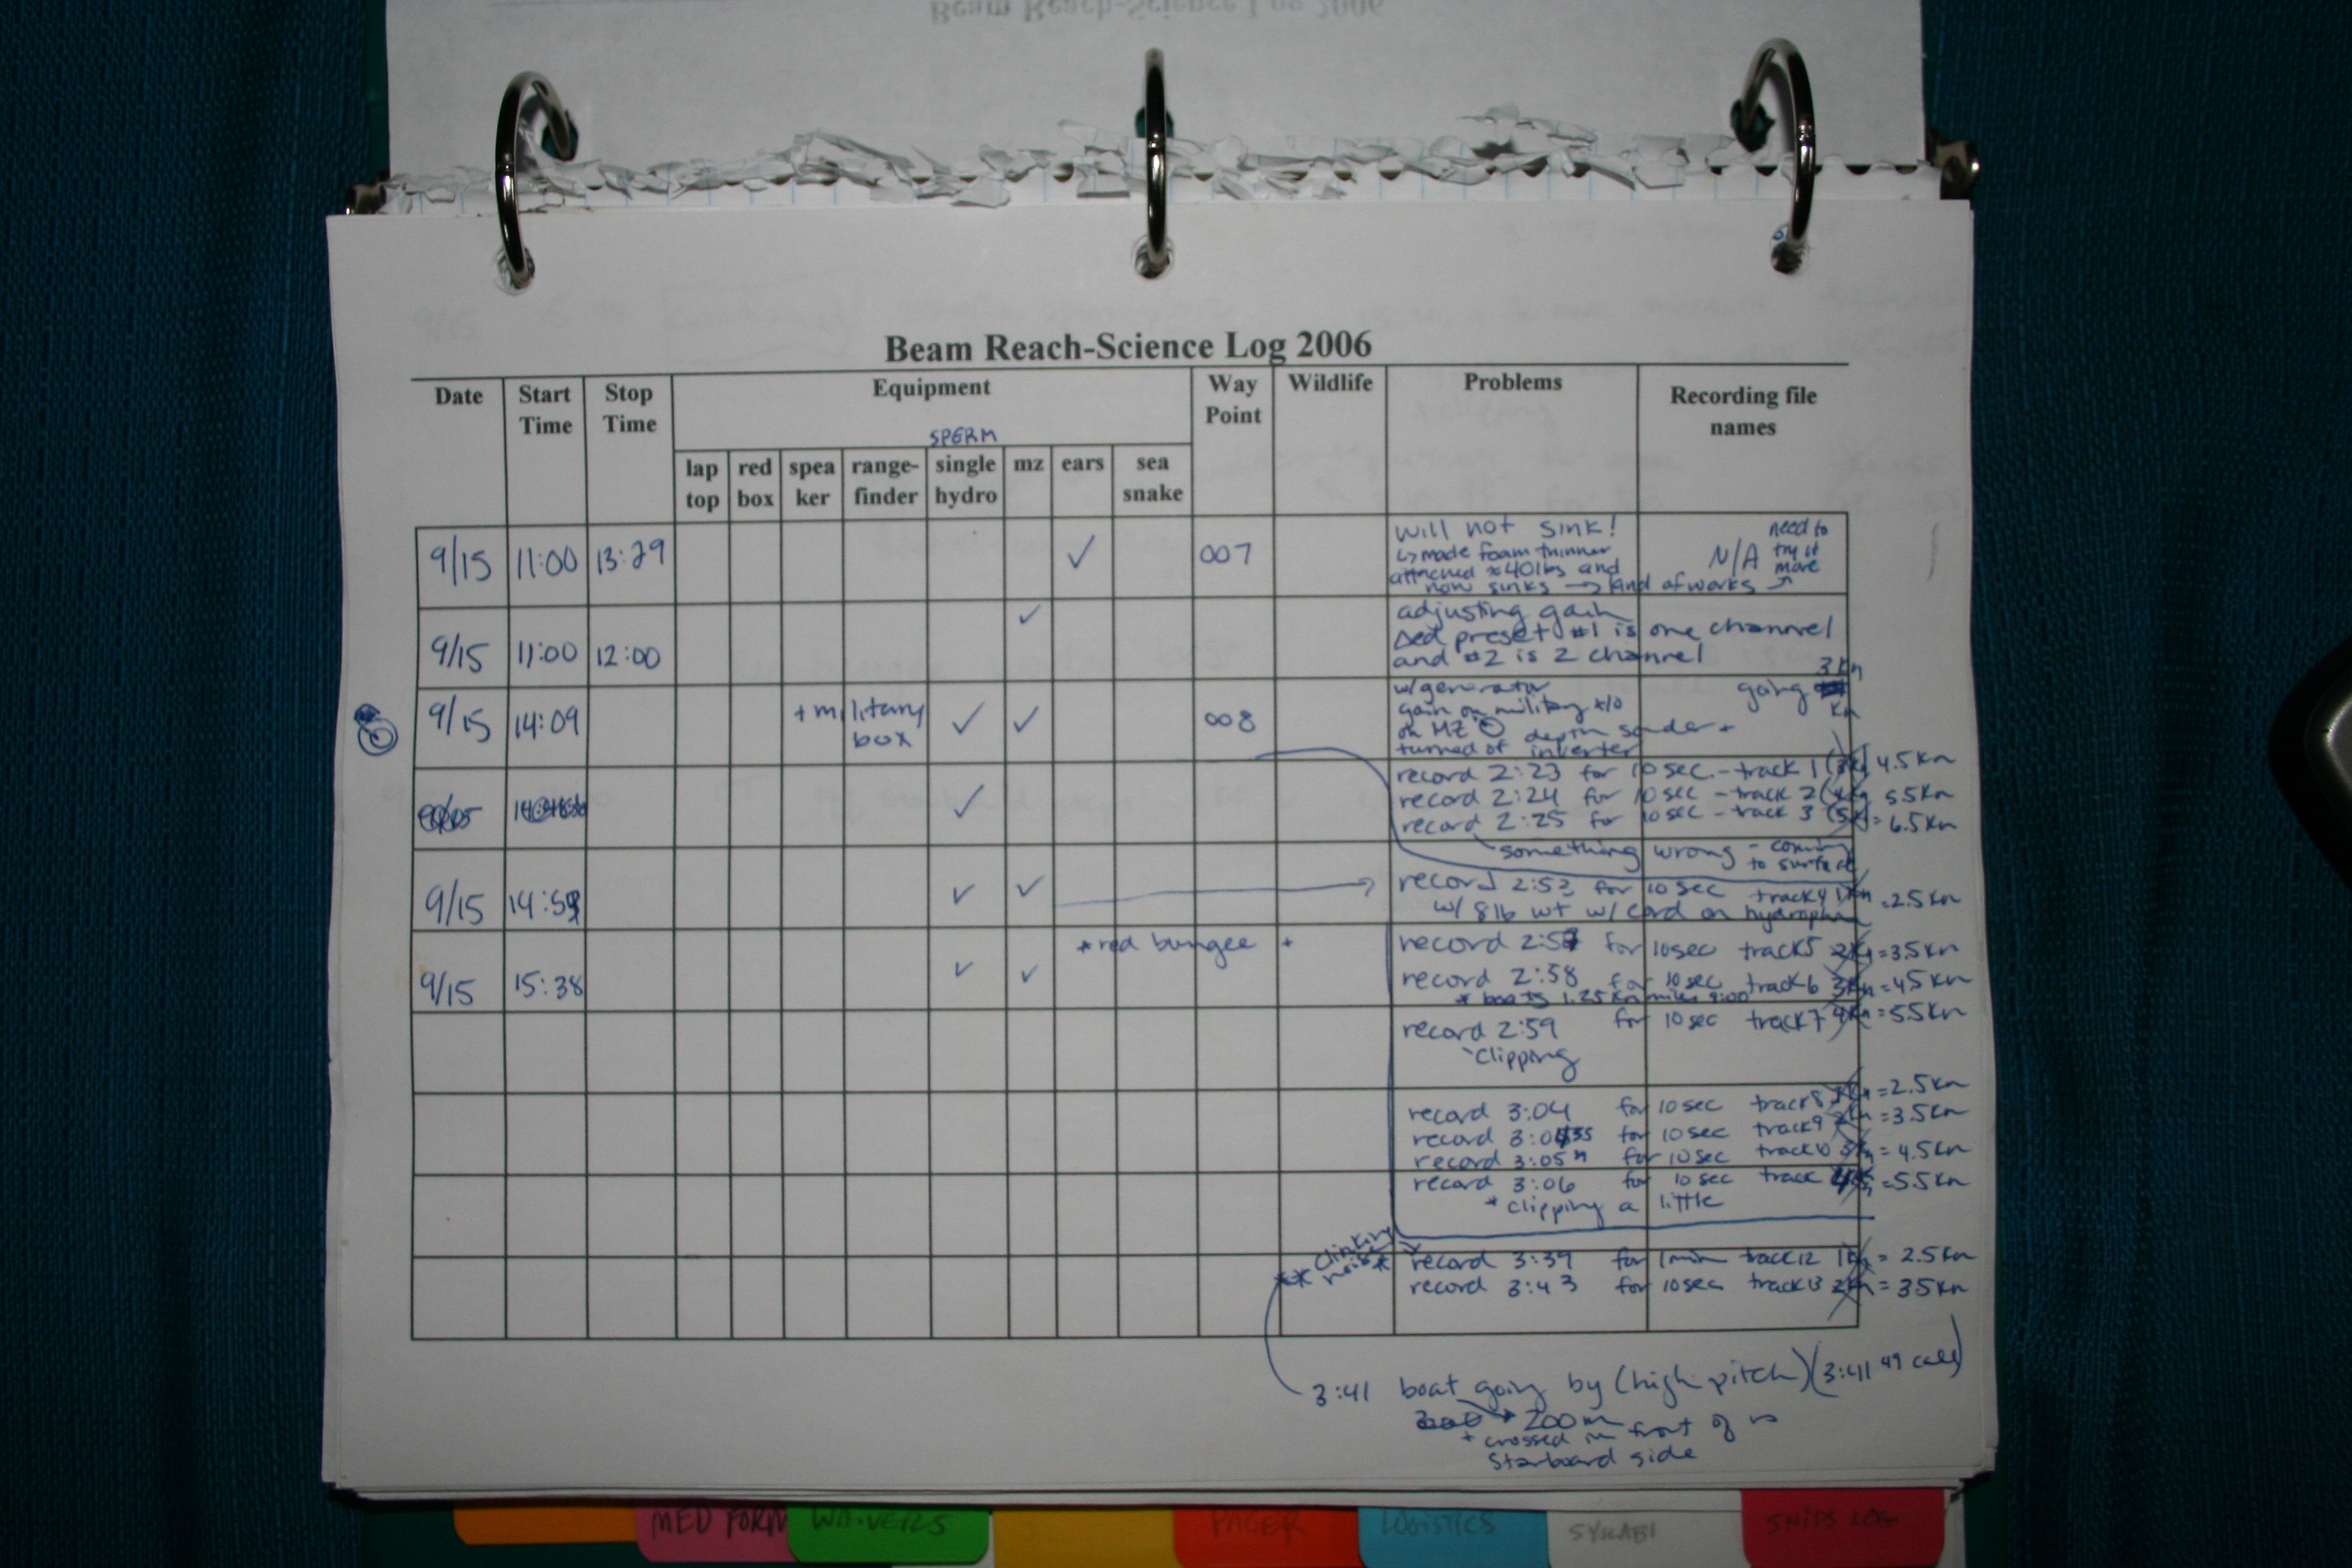 Beam Reach-Science Log 2006
Beam Reach-Science Log 2006
Date Start Time Stop Time Equipment Way Point Wildlife Problems Recording file names
SPERM
lap top red box spea ker range-finder single hydro mz ears sea snake
9/15 11:00 13:29 ✓ 007 will not sink!
↳ made foam thinner
attached ≈ 40lbs and
now sinks → kind of works
N/A need to
try it
more
9/15 11:00 12:00 ✓ adjusting gain
Δed preset #1 is one channel
and #2 is 2 channel
9/15 14:09 + military box ✓ ✓ 008 w/generator
gain on military x10
on MZ depth sounder +
turned of inverter
going 3 Kn
Kn
✓ record 2:23 for 10 sec. - track 1 4.5 Kn
record 2:24 for 10 sec - track 2 5.5 Kn
record 2:25 for 10 sec - track 3 = 6.5 Kn
something wrong - coming
to surface
9/15 14:59 ✓ ✓ record 2:53 for 10 sec track 4 = 2.5 Kn
w/ 8 lb wt w/ cord on hydrophone
* red bungee *
9/15 15:38 ✓ ✓ record 2:57 for 10 sec track 5 2 Kn = 3.5 Kn
record 2:58 for 10 sec track 6 3 Kn = 4.5 Kn
* boats 1.25 miles 9:00
record 2:59 for 10 sec track 7 4 Kn = 5.5 Kn
clipping
record 3:04 for 10 sec track 8 = 2.5 Kn
record for 10 sec track 9 = 3.5 Kn
record 3:05 for 10 sec track 10 3 Kn = 4.5 Kn
record 3:06 for 10 sec track = 5.5 Kn
* clipping a little
** clinking
noise *
record 3:39 for 1 min track 12 1 Kn = 2.5 Kn
record 3:43 for 10 sec track 13 2 Kn = 3.5 Kn
3:41 boat going by (high pitch) (3:41 49 call)
→ 200 m
+ crossed in front of us
starboard side
MED FORM WAIVERS PAGER LOGISTICS SYLLABI SHIPS LOG